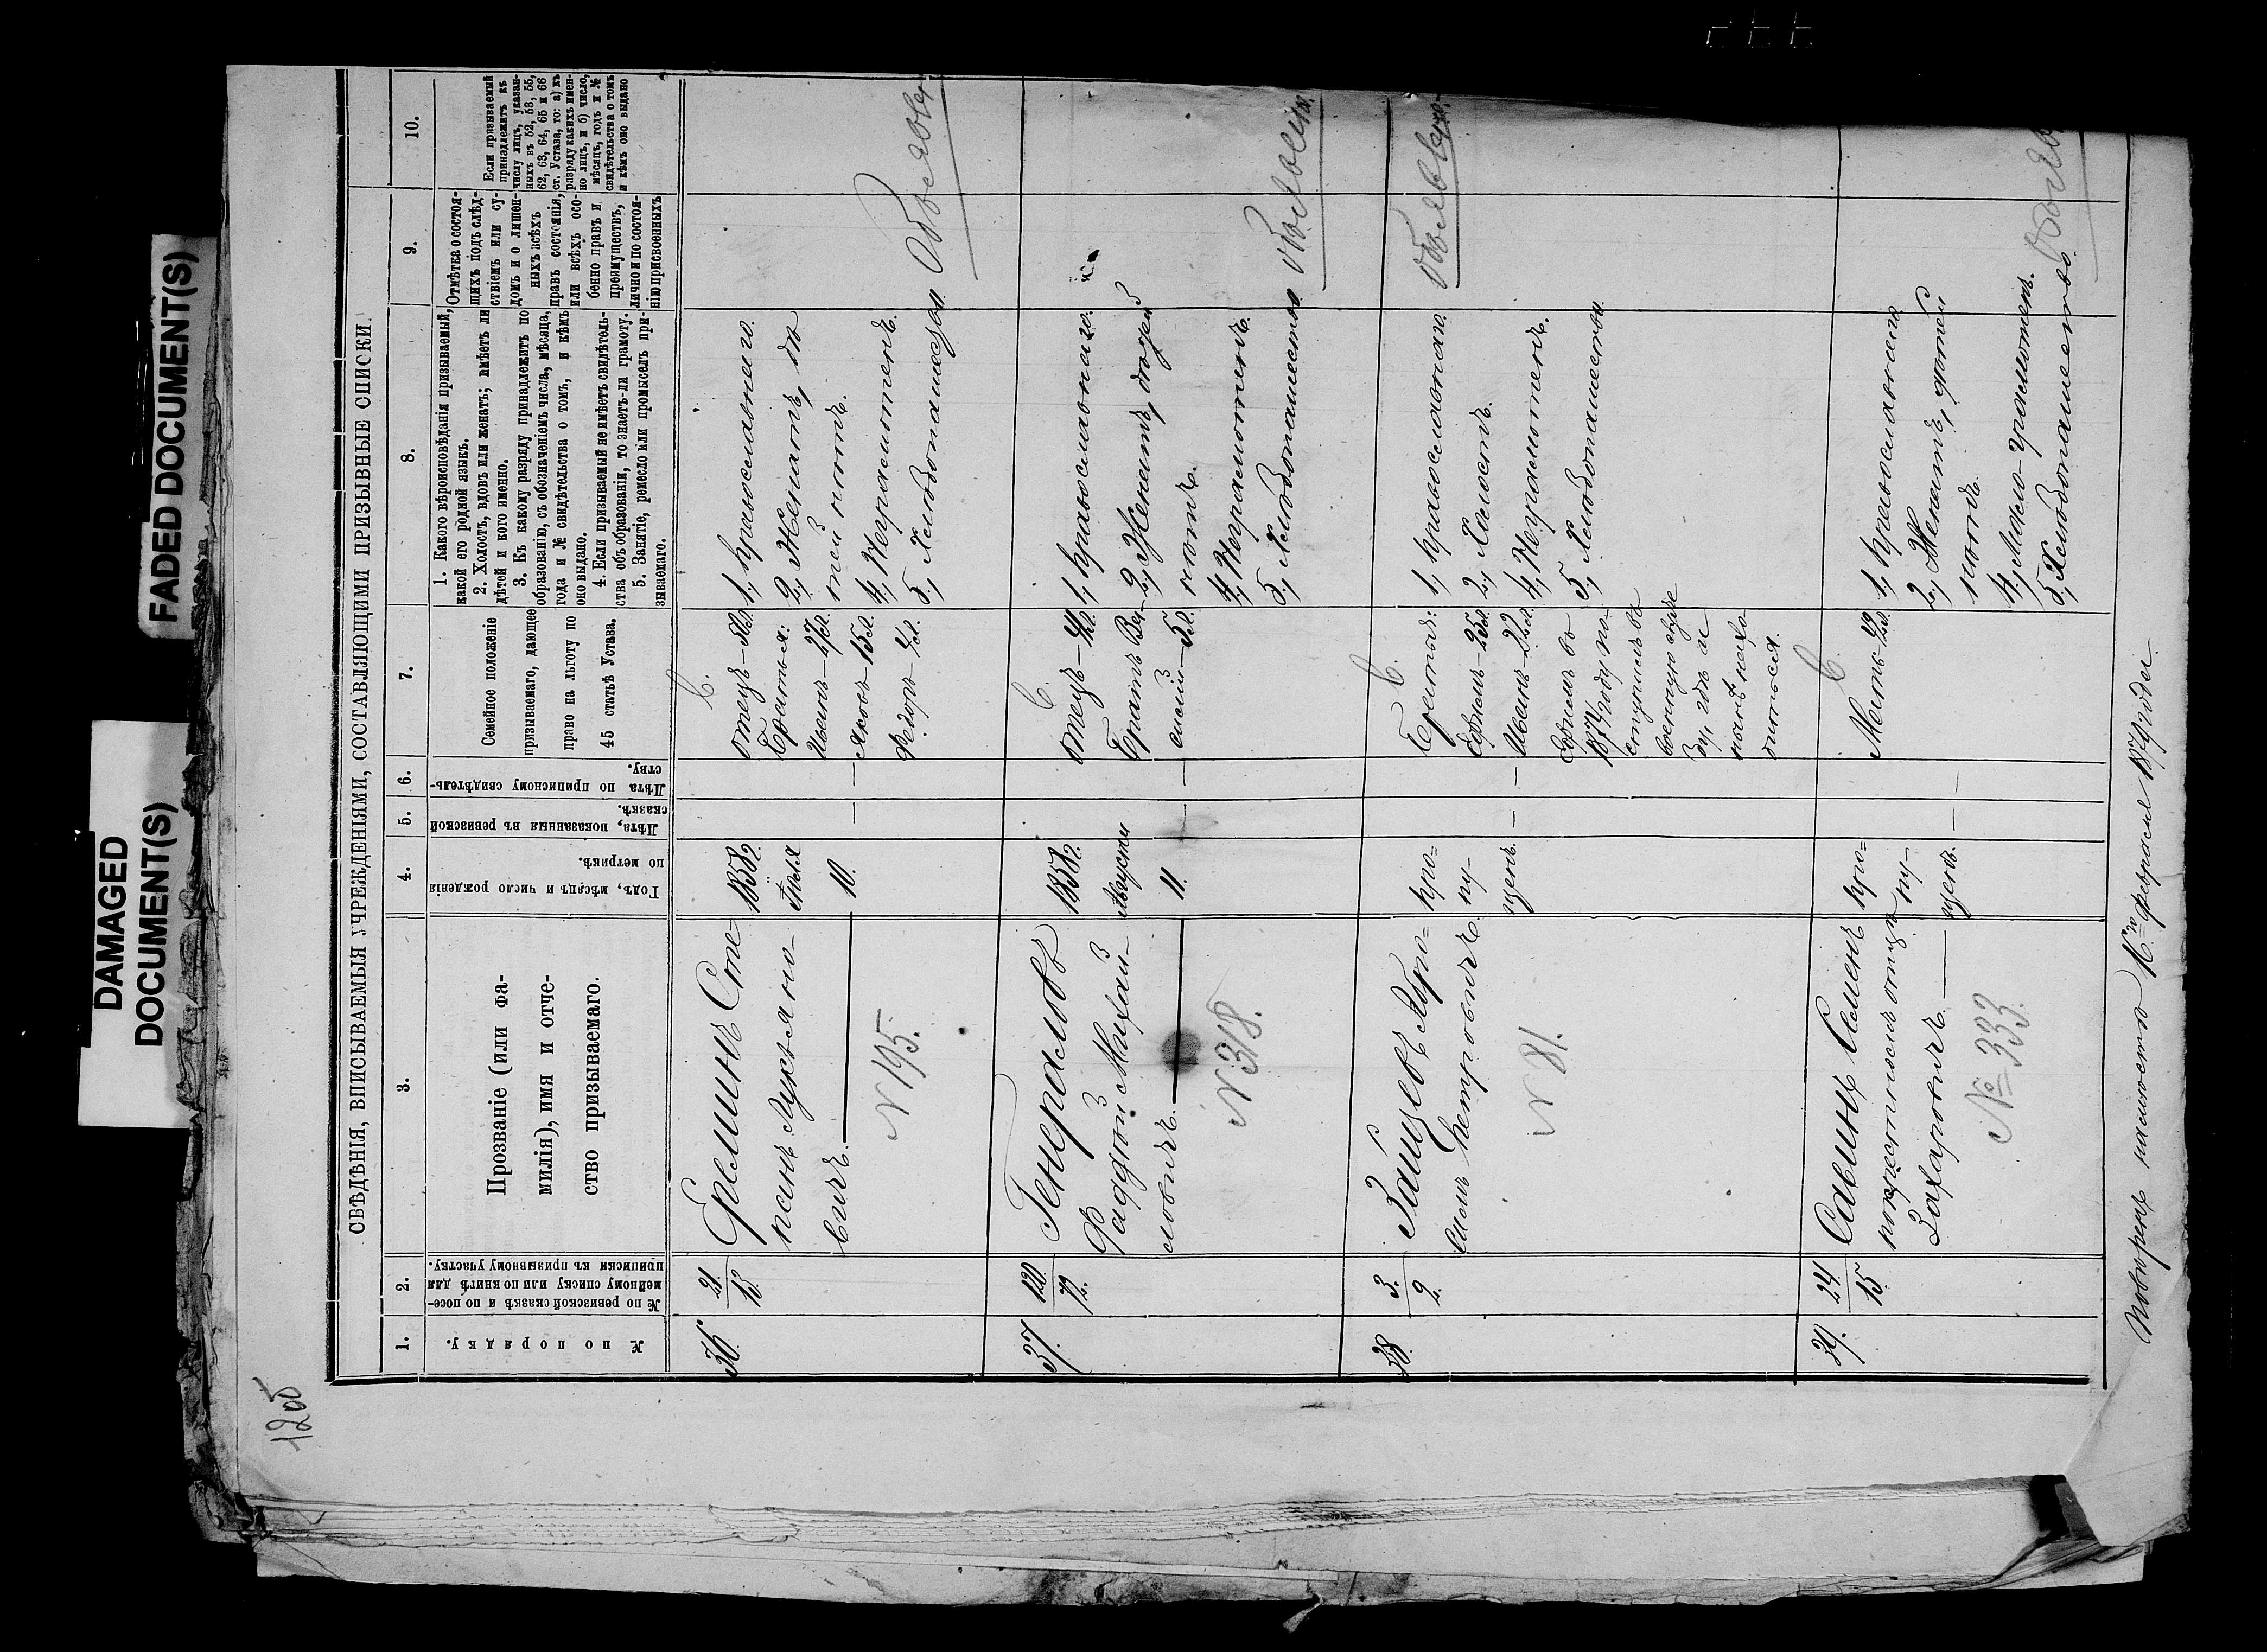 FADED DOCUMENT(S)
DAMAGED
DOCUMENT(S)
120б
СВѢДѢНІЯ, ВПИСЫВАЕМЫЯ УЧРЕЖДЕНІЯМИ, СОСТАВЛЯЮЩИМИ ПРИЗЫВНЫЕ СПИСКИ.
1.
2.
3.
4.
5.
6.
7.
8.
9.
10.
№ по порядку.
№ по ревизской сказкѣ и по посе-
мейному списку или по книгѣ для
приписки къ призывному участку.
Прозваніе (или фа-
милія), имя и отче-
ство призываемаго.
Годъ, мѣсяцъ и число рожденія
по метрикѣ.
Лѣта, показанныя въ ревизской
сказкѣ.
Лѣта по приписному свидѣтель-
ству.
Семейное положеніе
призываемаго, дающее
право на льготу по
45 статьѣ Устава.
1. Какого вѣроисповѣданія призываемый,
какой его родной языкъ.
2. Холостъ, вдовъ или женатъ; имѣетъ ли
дѣтей и кого именно.
3. Къ какому разряду принадлежитъ по
образованію, съ обозначеніемъ числа, мѣсяца,
года и № свидѣтельства о томъ, и кѣмъ
оно выдано.
4. Если призываемый не имѣетъ свидѣтель-
ства объ образованіи, то знаетъ-ли грамоту.
5. Занятіе, ремесло или промыселъ при-
зываемаго.
Отмѣтка о состоя-
щихъ подъ слѣд-
ствіемъ или су-
домъ и о лишен-
ныхъ всѣхъ
правъ состоянія,
или всѣхъ осо-
бенно правъ и
преимуществъ,
лично и по состоя-
нію присвоенныхъ
Если призываемый
принадлежитъ къ
числу лицъ, указан-
ныхъ въ 52, 53, 55,
62, 63, 64, 65 и 66
ст. Устава, то: а) къ
разряду какихъ имен-
но лицъ, и б) число,
мѣсяцъ, годъ и №
свидѣтельства о томъ
и кѣмъ оно выдано
36.
21.
13.
Ереминъ Сте-
панъ Лукьяно-
вичъ.
N 195.
1858 г.
10.
—
—
отецъ
Братья:
Иванъ
Яковъ — 15 л.
Федоръ
1, Православнаго.
2, Женатъ, дѣ
тей нѣтъ.
4, Неграмотенъ.
5, Хлѣбопашество.
37.
120.
72.
Генераловъ
Фаддей Михай-
ловичъ.
N 318.
1858 г.
Августа
11.
—
—
отецъ
Братъ
1, Православнаго.
2, Женатъ, дѣтей
нѣтъ.
4, Неграмотенъ.
5, Хлѣбопашество.
38.
3.
2.
Зайцевъ
Петровичъ.
N 81.
про=
пу-
щенъ.
—
—
Братья:
Иванъ — 22 л.
1874 году по-
ступилъ въ
военную служ
бу, гдѣ и
нынѣ нахо
дится.
1, Православнаго.
2, Холостъ.
4, Неграмотенъ.
5, Хлѣбопашество.
39.
24.
15.
Савинъ Семенъ
Захаровичъ.
№ 333.
про=
пу-
щенъ.
—
—
Мать
1, Православнаго
2, Женатъ, дѣтей
нѣтъ.
4, Мало-грамотенъ.
5, Хлѣбопашество.
февраля 1879 года.